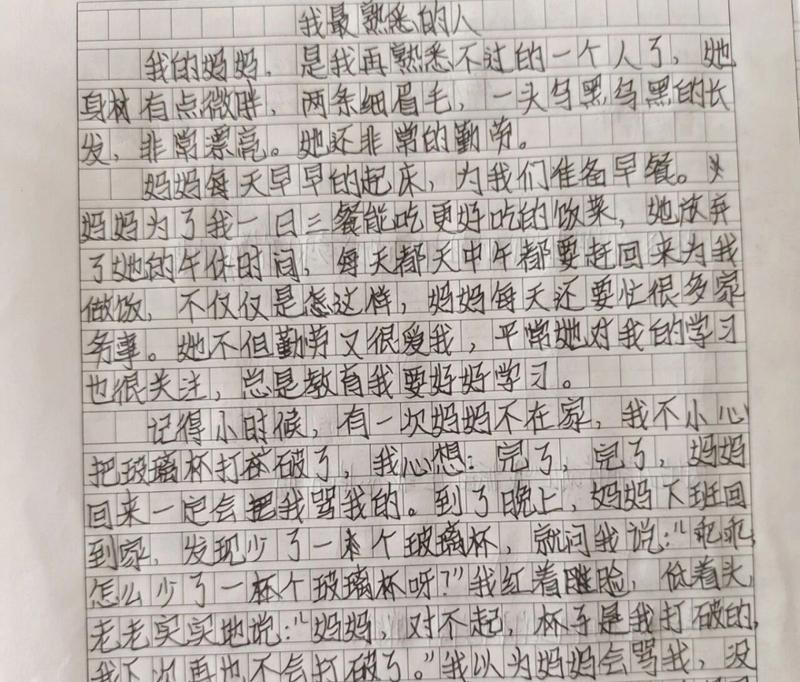 我最熟悉的人
我的妈妈，是我再熟悉不过的一个人了，她
身材有点微胖，两条细眉毛，一头乌黑乌黑的长
发，非常漂亮。她还非常的勤劳。
妈妈每天早早的起床，为我们准备早餐。
妈妈为了我一日三餐能吃更好吃的饭菜，她放弃
了她的午休时间，每天都天中午都要赶回来为我
做饭，不仅仅是怎这样，妈妈每天还要忙很多家
务事。她不但勤劳又很爱我，平常她对我的学习
也很关注，总是教育我要好好学习。
记得小时候，有一次妈妈不在家，我不小心
把玻璃杯打破了，我心想：完了，完了，妈妈
回来一定会把我骂我的。到了晚上，妈妈下班回
到家，发现少了一个玻璃杯，就问我说：“乖乖，
怎么少了一杯个玻璃杯呀？”我红着脸，低着头，
老老实实地说：“妈妈，对不起，杯子是我打破的，
我下次再也不会打破了。”我以为妈妈会骂我，没